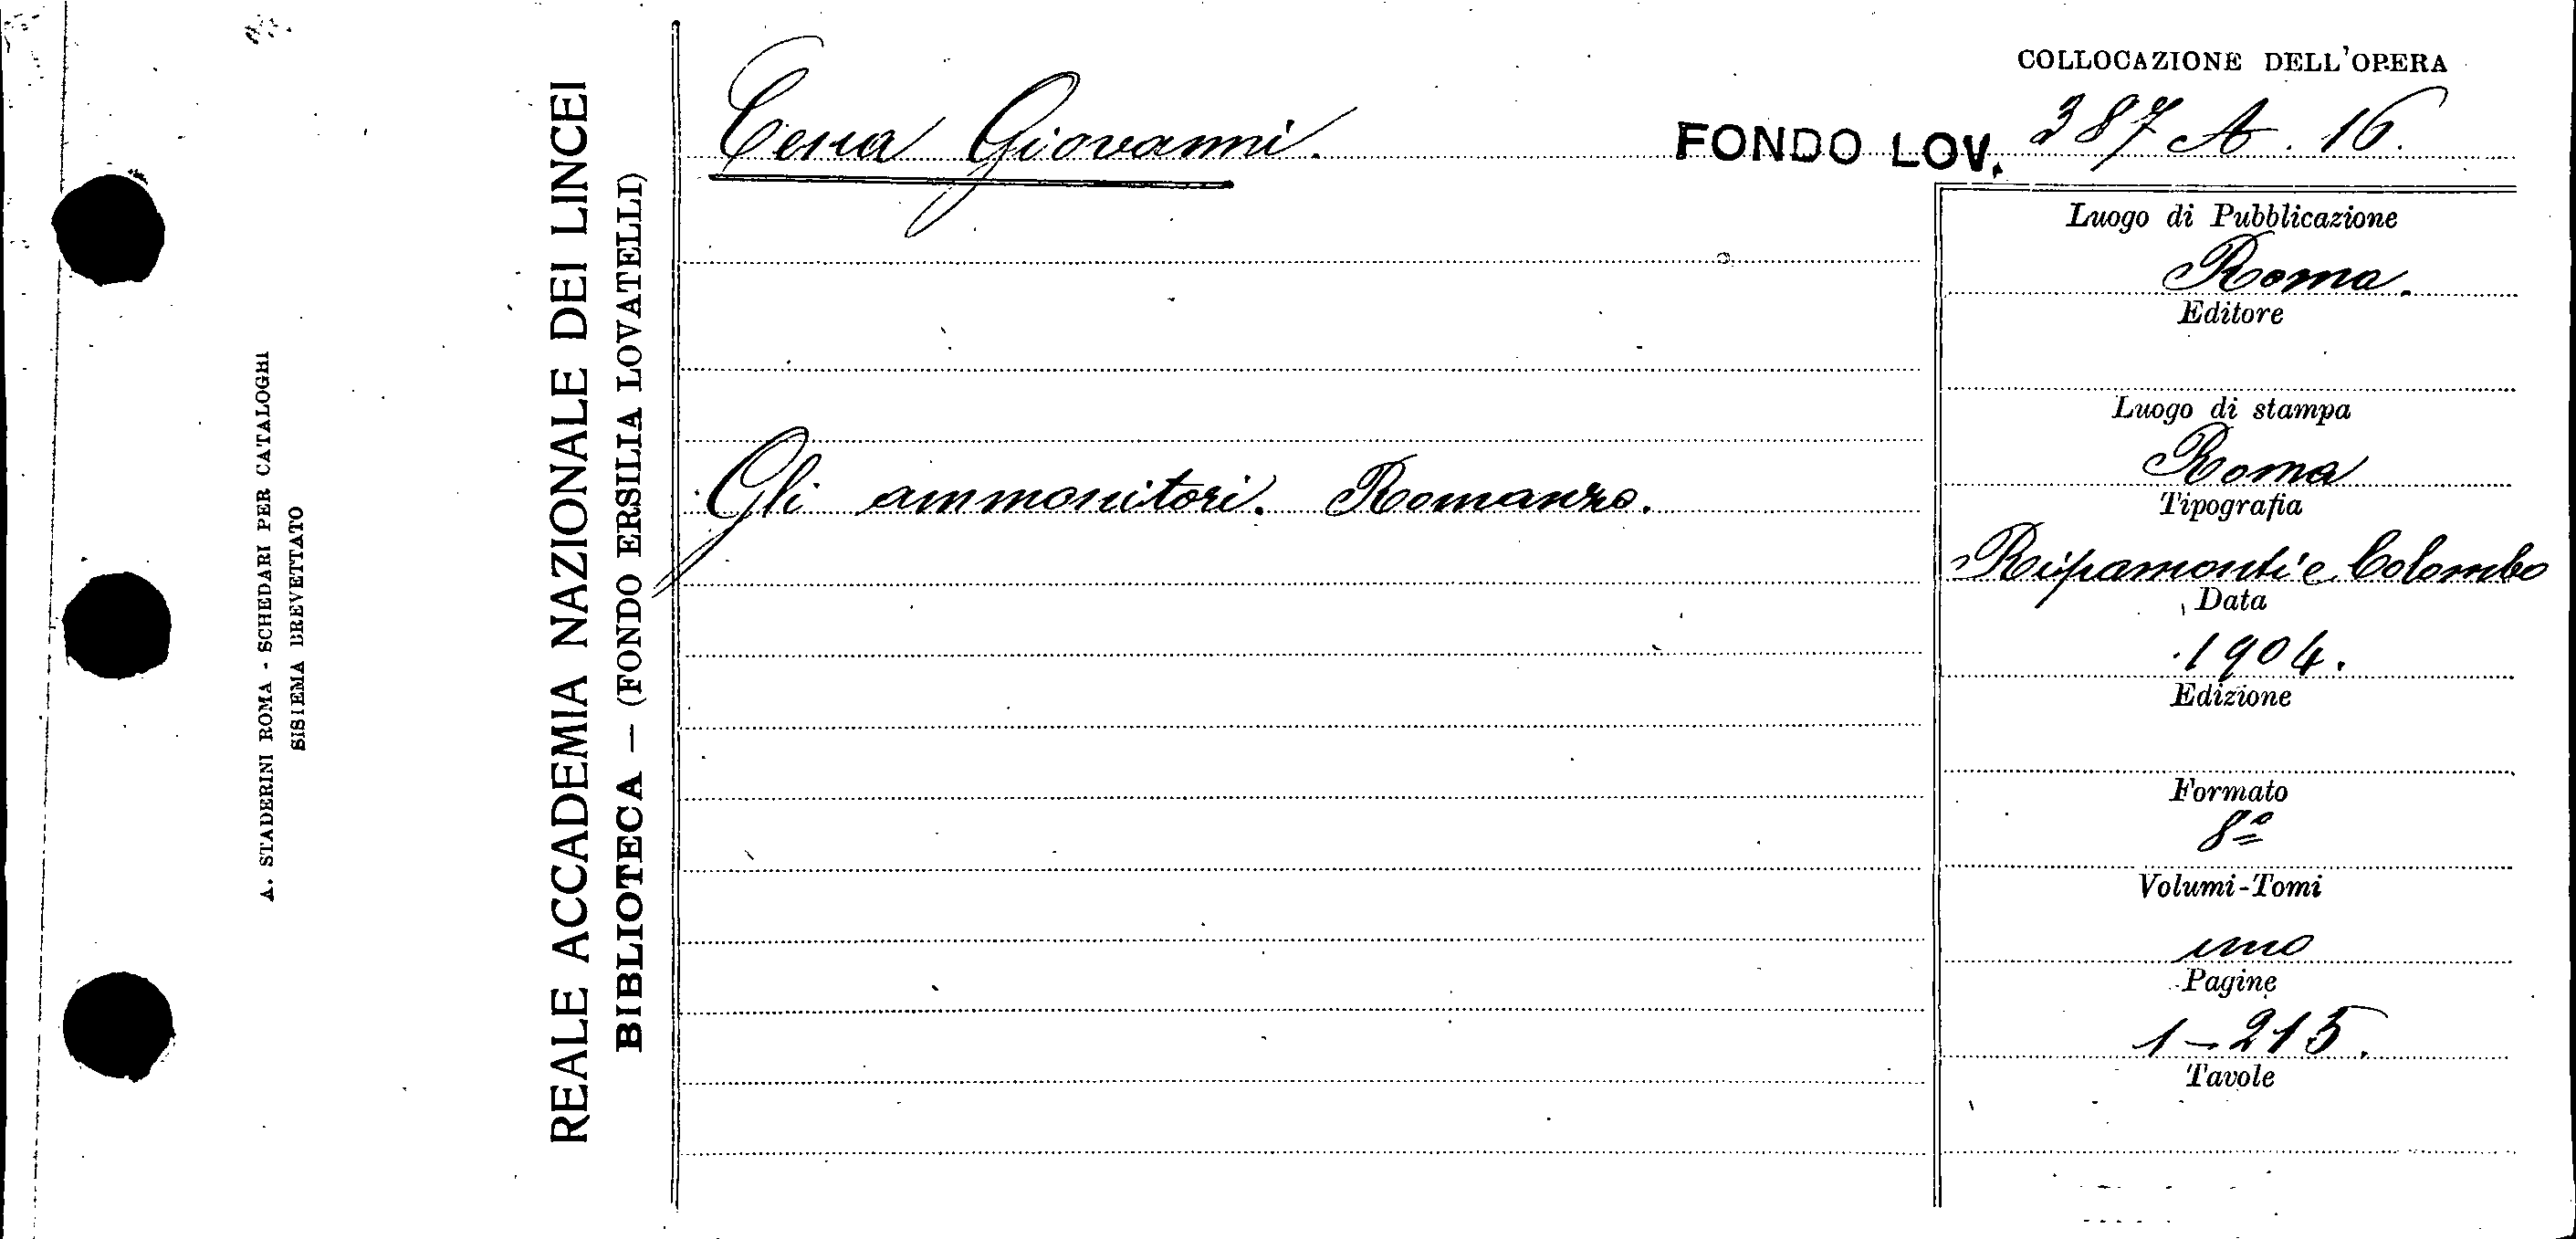 A. STADERINI ROMA - SCHEDARI PER CATALOGHI
SISTEMA BREVETTATO
REALE ACCADEMIA NAZIONALE DEI LINCEI
BIBLIOTECA — (FONDO ERSILIA LOVATELLI)
Cena Giovanni.
Gli ammonitori. Romanzo.
COLLOCAZIONE DELL'OPERA
FONDO LOV. 387 A. 16.
Luogo di Pubblicazione
Roma.
Editore
Luogo di stampa
Roma
Tipografia
Ripamonti e Colombo
Data
1904.
Edizione
Formato
8º
Volumi-Tomi
uno
Pagine
1-215.
Tavole